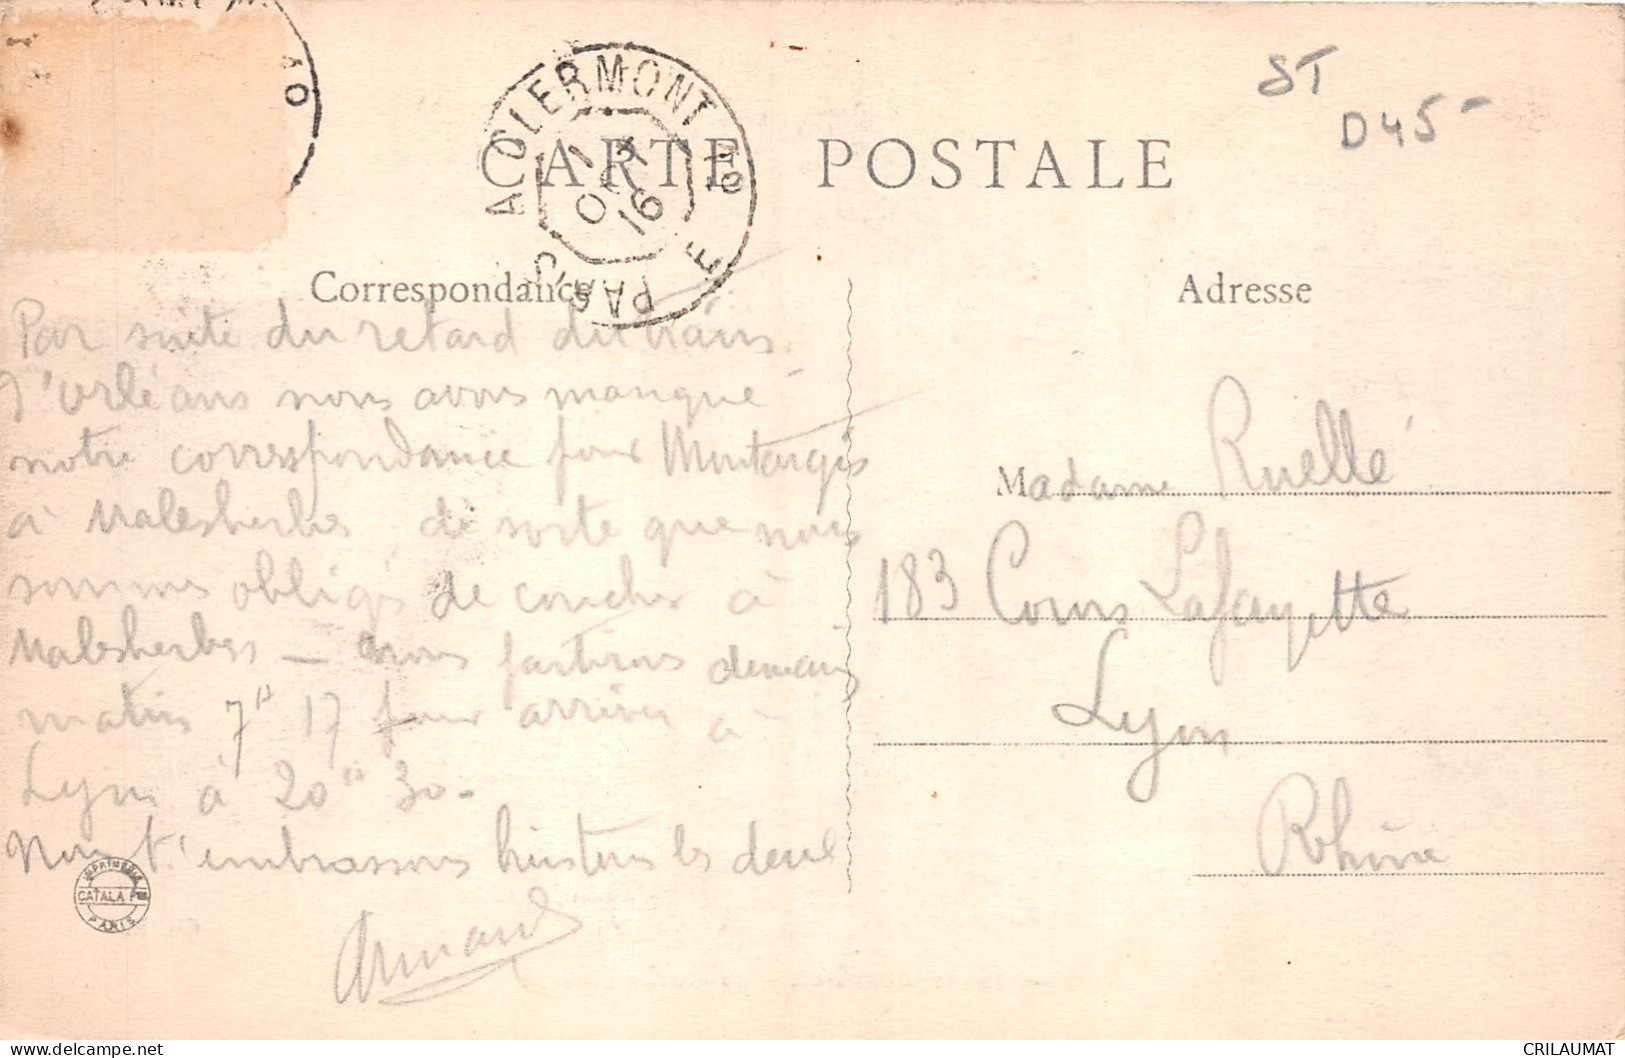 ST
D45-
PARIS A CLERMONT
16
CARTE POSTALE
Correspondance
Adresse
Par suite du retard du train
d'Orléans nous avons manqué
notre correspondance pour Montargis
à Malesherbes de sorte que nous
sommes obligés de coucher à
Malesherbes — nous partirons demain
matin 7h 17 pour arriver à
Lyon à 20h 30.
Nous t'embrassons les deux
Armand
Madame Ruellé
183 Cours Lafayette
Lyon
Rhône
IMPRIMERIE
CATALA Fres
PARIS
CRILAUMAT